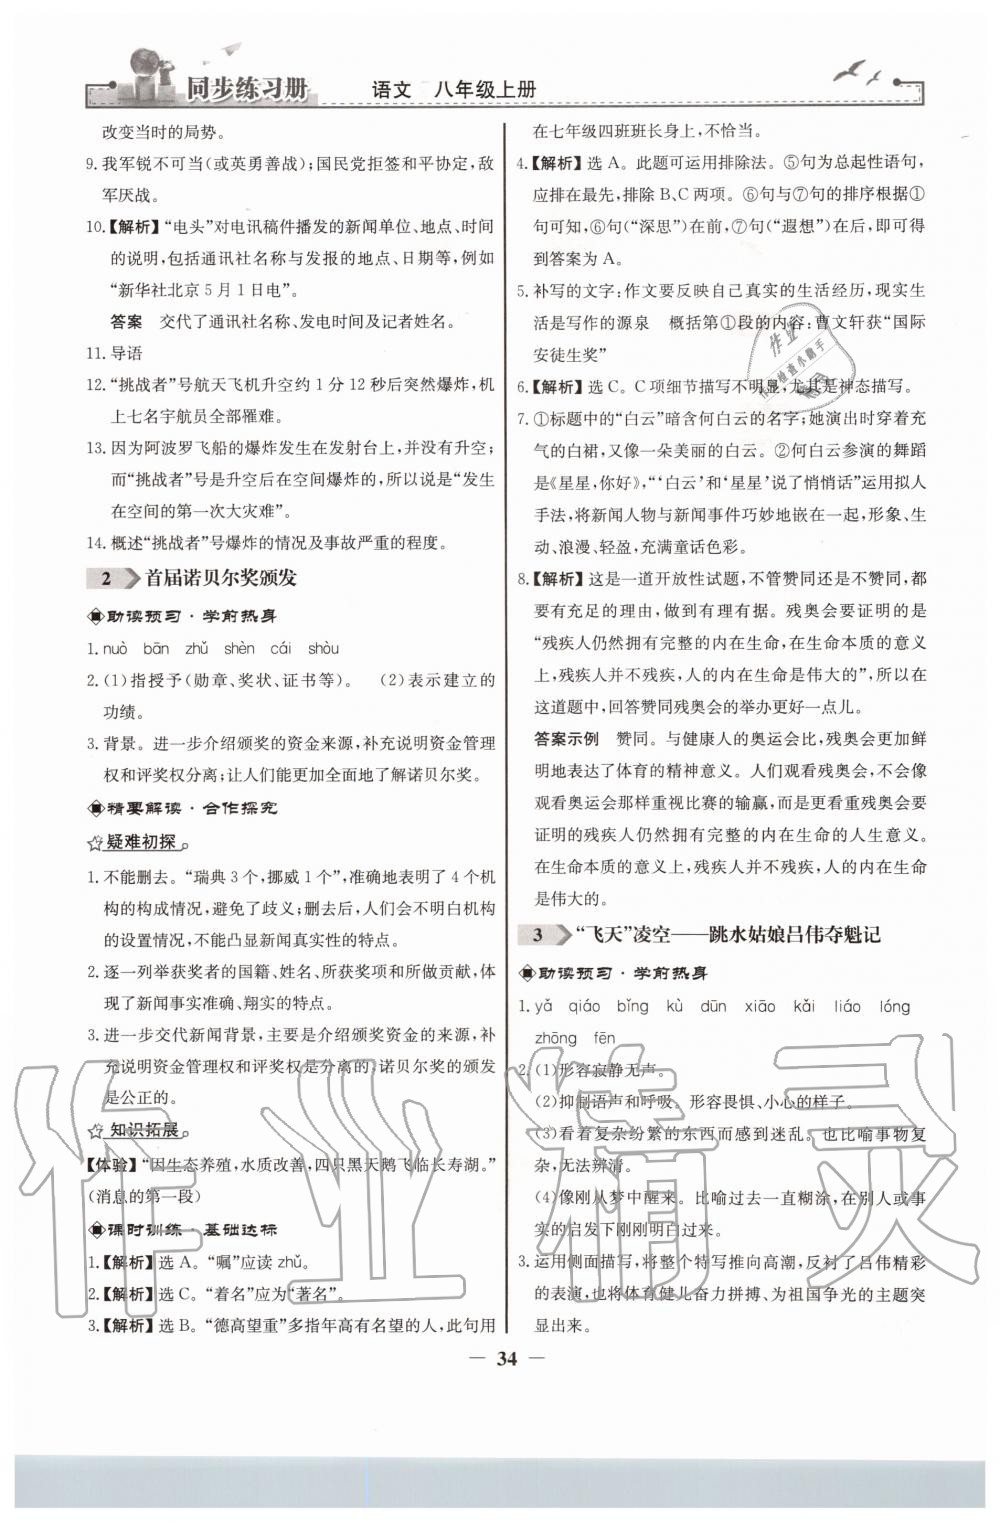 同步练习册 语文 八年级上册
改变当时的局势。
9. 我军锐不可当(或英勇善战);国民党拒签和平协定,敌
军厌战。
10.【解析】“电头”对电讯稿件播发的新闻单位、地点、时间
的说明,包括通讯社名称与发报的地点、日期等,例如
“新华社北京5月1日电”。
答案 交代了通讯社名称、发电时间及记者姓名。
11. 导语
12.“挑战者”号航天飞机升空约1分12秒后突然爆炸,机
上七名宇航员全部罹难。
13. 因为阿波罗飞船的爆炸发生在发射台上,并没有升空;
而“挑战者”号是升空后在空间爆炸的,所以说是“发生
在空间的第一次大灾难”。
14. 概述“挑战者”号爆炸的情况及事故严重的程度。
2 首届诺贝尔奖颁发
助读预习·学前热身
1. nuò bān zhǔ shèn cái shòu
2. (1)指授予(勋章、奖状、证书等)。 (2)表示建立的
功绩。
3. 背景。进一步介绍颁奖的资金来源,补充说明资金管理
权和评奖权分离;让人们能更加全面地了解诺贝尔奖。
精要解读·合作探究
疑难初探
1. 不能删去。“瑞典3个,挪威1个”,准确地表明了4个机
构的构成情况,避免了歧义;删去后,人们会不明白机构
的设置情况,不能凸显新闻真实性的特点。
2. 逐一列举获奖者的国籍、姓名、所获奖项和所做贡献,体
现了新闻事实准确、翔实的特点。
3. 进一步交代新闻背景,主要是介绍颁奖资金的来源,补
充说明资金管理权和评奖权是分离的,诺贝尔奖的颁发
是公正的。
知识拓展
【体验】“因生态养殖,水质改善,四只黑天鹅飞临长寿湖。”
(消息的第一段)
课时训练·基础达标
1.【解析】选A。“嘱”应读zhǔ。
2.【解析】选C。“着名”应为“著名”。
3.【解析】选B。“德高望重”多指年高有名望的人,此句用
在七年级四班班长身上,不恰当。
4.【解析】选A。此题可运用排除法。⑤句为总起性语句,
应排在最先,排除B、C两项。⑥句与⑦句的排序根据①
句可知,⑥句(“深思”)在前,⑦句(“遐想”)在后,即可得
到答案为A。
5. 补写的文字:作文要反映自己真实的生活经历,现实生
活是写作的源泉 概括第①段的内容:曹文轩获“国际
安徒生奖”
6.【解析】选C。C项细节描写不明显,尤其是神态描写。
7. ①标题中的“白云”暗含何白云的名字;她演出时穿着充
气的白裙,又像一朵美丽的白云。②何白云参演的舞蹈
是《星星,你好》,“‘白云’和‘星星’说了悄悄话”运用拟人
手法,将新闻人物与新闻事件巧妙地嵌在一起,形象、生
动、浪漫、轻盈,充满童话色彩。
8.【解析】这是一道开放性试题,不管赞同还是不赞同,都
要有充足的理由,做到有理有据。残奥会要证明的是
“残疾人仍然拥有完整的内在生命,在生命本质的意义
上,残疾人并不残疾,人的内在生命是伟大的”,所以在
这道题中,回答赞同残奥会的举办更好一点儿。
答案示例 赞同。与健康人的奥运会比,残奥会更加鲜
明地表达了体育的精神意义。人们观看残奥会,不会像
观看奥运会那样重视比赛的输赢,而是更看重残奥会要
证明的残疾人仍然拥有完整的内在生命的人生意义。
在生命本质的意义上,残疾人并不残疾,人的内在生命
是伟大的。
3 “飞天”凌空——跳水姑娘吕伟夺魁记
助读预习·学前热身
1. yǎ qiáo bǐng kù dūn xiāo kǎi liáo lóng
zhōng fēn
2. (1)形容寂静无声。
(2)抑制语声和呼吸。形容畏惧、小心的样子。
(3)看着复杂纷繁的东西而感到迷乱。也比喻事物复
杂,无法辨清。
(4)像刚从梦中醒来。比喻过去一直糊涂,在别人或事
实的启发下刚刚明白过来。
3. 运用侧面描写,将整个特写推向高潮,反衬了吕伟精彩
的表演,也将体育健儿奋力拼搏、为祖国争光的主题突
显出来。
— 34 —
作业精灵